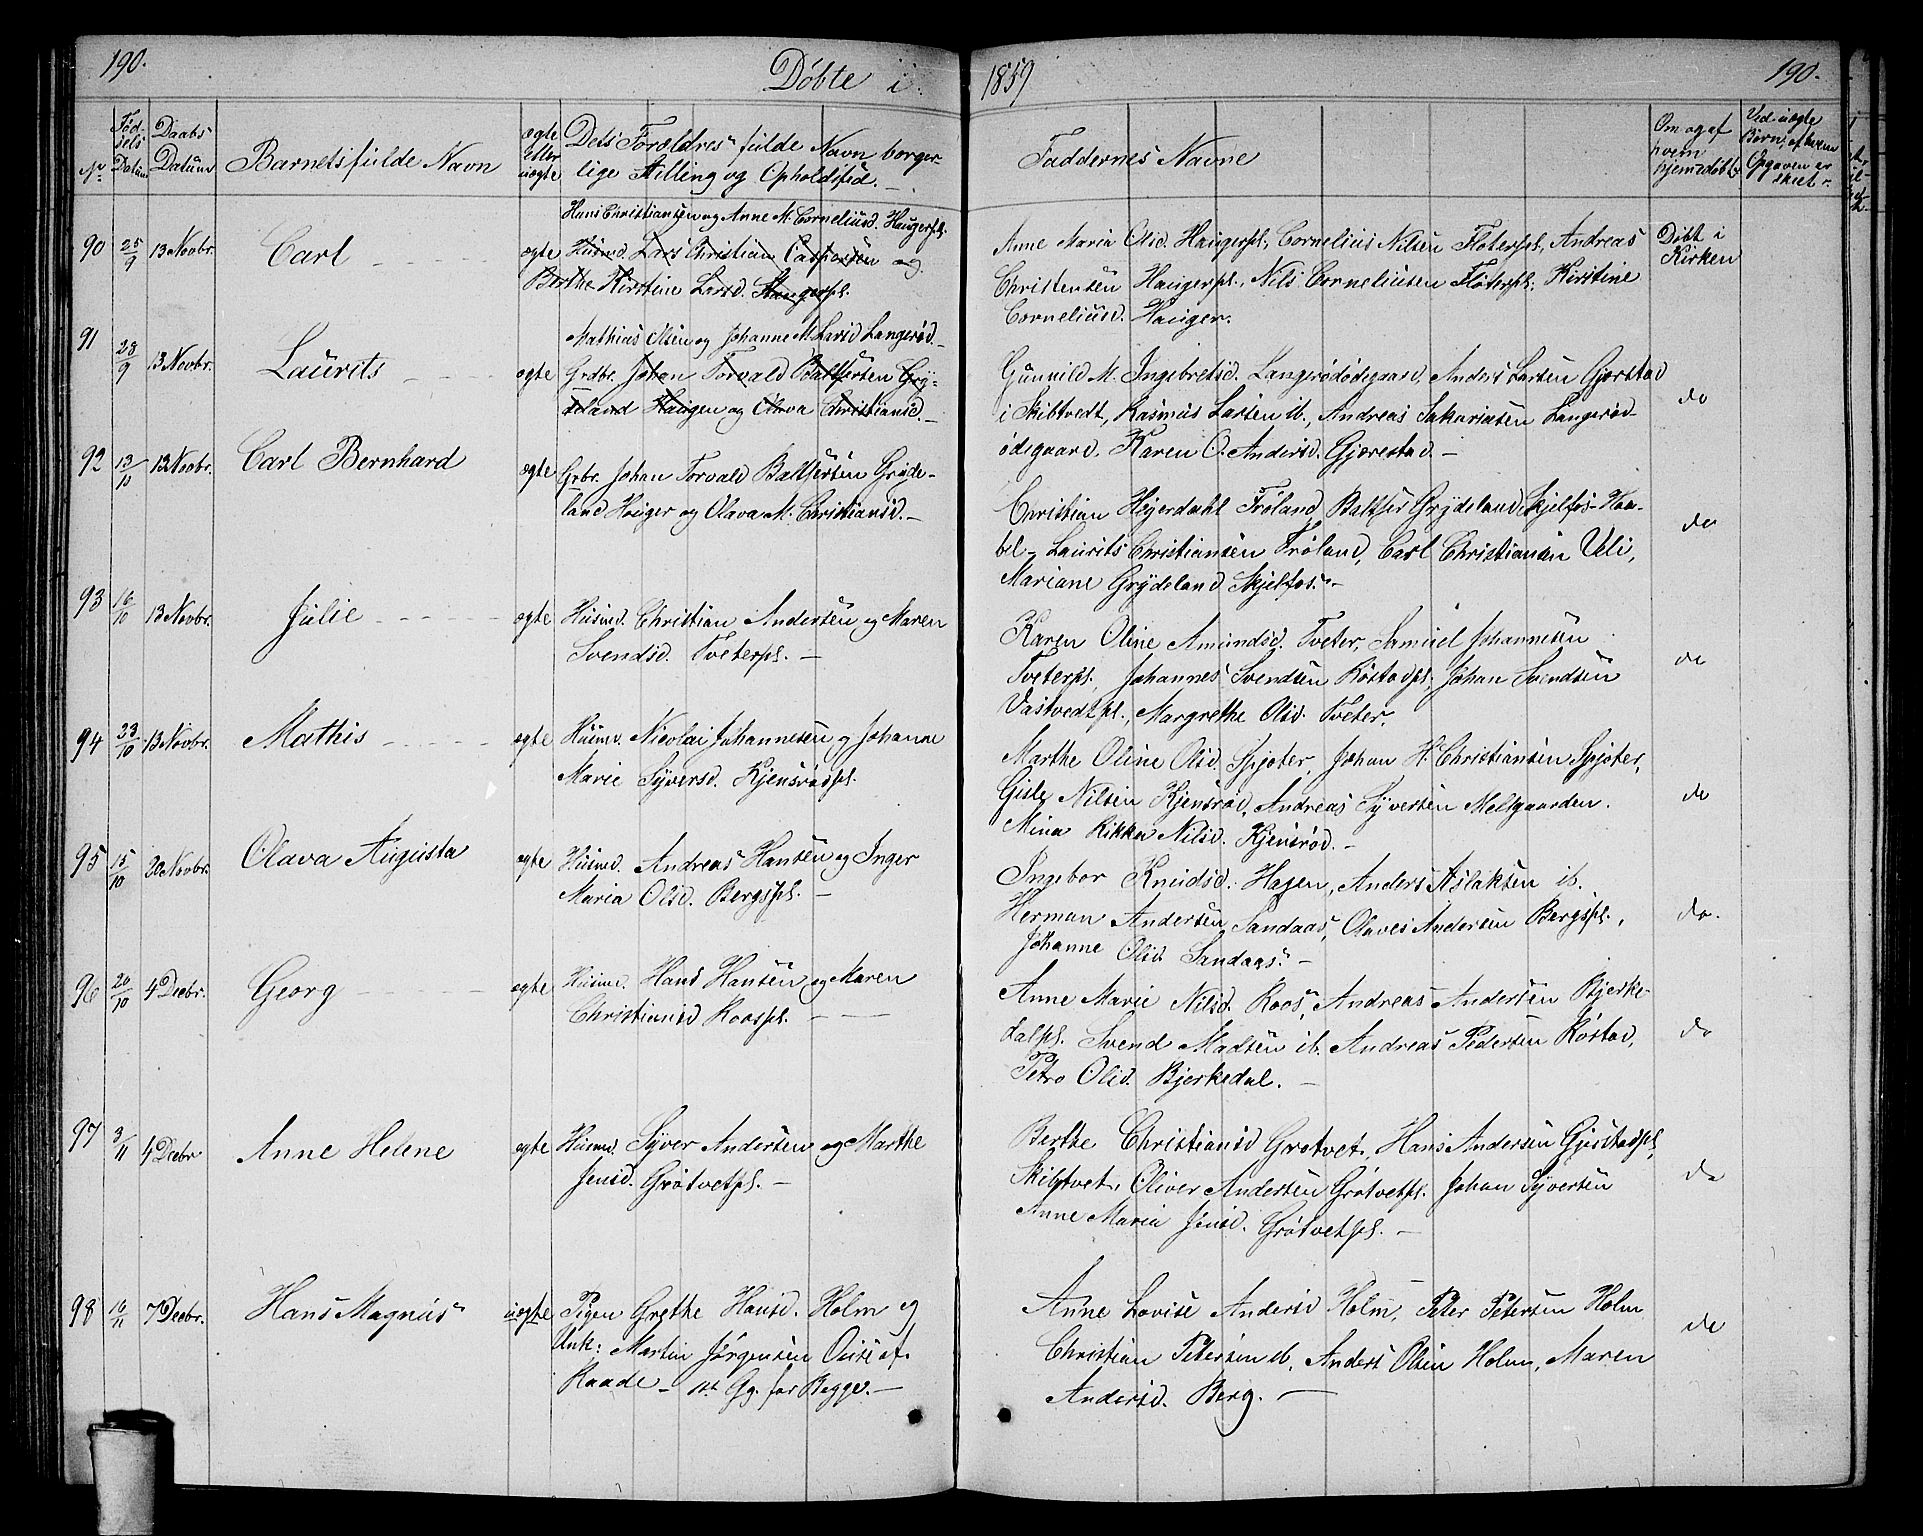 190.
Døbte i
1859
190.
No
Fød-
sels
Datum
Daabs
Datum
Barnets fulde Navn
ægte
eller
uægte
Dets Forældres fulde Navn borger-
lige Stilling og Opholdsted.
Faddernes Navne
Om og af
hvem
hjemmedøbt
Ved uægte
Børn, af hvem
Opgaven er
skeet
90 25/9 13 Novbr. Carl ægte
Hans Christiansen og Anne M. Corneliusd. Haugerpl.
Husmd. Lars Christian Caspersen og
Berthe Kirstine Larsd. Haugerpl.
Anne Maria Olsd. Haugerpl., Cornelius Nilsen Fløterpl., Andreas
Christensen Haugerpl., Nils Corneliusen Fløterpl. Kirstine
Corneliusd. Hauger.
Døbt i
Kirken
91 28/9 13 Novbr. Laurits ægte
Mathias Olsen og Johanne M. Larsd Langerød
Grdbr. Johan Torvald Baltsersen Gry-
deland Haugen og Olava Christiansd.
Gunnild M. Ingebretsd. Langerødødegaard, Anders Larsen Gjerstad
i Skibtvedt, Rasmus Larsen ib., Andreas Sakariasen Langerød-
ødegaard, Karen O. Andersd. Gjærestad
do
92 13/10 13 Novbr. Carl Bernhard ægte
Grbr. Johan Torvald Baltsersen Gryde-
land Hauger og Olava M. Christiansd.
Christian Heyerdahl Frøland, Baltser Grydeland Skjelfos-Haa-
bel- Laurits Christiansen Frøland, Carl Christiansen Veli,
Mariane Grydeland Skjelfos
do
93 16/10 13 Novbr. Julie ægte
Husmd. Christian Andersen og Maren
Svendsd. Tveterpl.
Karen Oline Amundsd. Tveter, Samuel Johannesen
Tveterpl., Johannes Svendsen Røstadpl, Johan Svendsen
Vastvedtpl., Margrethe Olsd. Tveter.
do
94 23/10 13 Novbr. Mathis ægte
Husmd. Nicolai Johannesen og Johanne
Marie Syversd. Kjensrødpl.
Marthe Oline Olsd. Spjøter, Johan H. Christiansen Spjøter,
Gisle Nilsen Kjensrød, Andreas Syversen Melgaarden.
Mina Rikka Nilsd. Kjensrød.
do
95 15/10 20 Novbr. Olava Augusta ægte
Husmd. Andreas Hansen og Inger
Maria Olsd. Bergspl.
Ingebor Knudsd. Hagen, Anders Aslaksen ib.
Herman Andersen Sandaas, Olaves Andersen Bergspl.,
Johanne Olsd. Sandaas.
do.
96 20/10 4 Decbr. Georg ægte
Husmd. Hans Hansen og Maren
Christiansd Roospl.
Anne Marie Nilsd. Roos, Andreas Andersen Bjerke-
dalpl. Svend Madsen ib. Andreas Pedersen Røstad,
Petro Olsd. Bjerkedal.
do
97 3/11 4 Decbr Anne Helene ægte
Husmd. Syver Andersen og Marthe
Jensd. Grøtvetpl.
Berthe Christiansd Grøtvet, Hans Andersen Gjøstadpl,
Skibtvet, Oliver Andersen Grøtvetpl. Johan Syversen
Anne Maria Jensd. Grøtvetpl.
do
98 10/11 7 Decbr. Hans Magnus uægte
Pigen Grethe Hansd. Holm og
Unk: Martin Jørgensen af
Raade - 1st Gg. for Begge.
Anne Lovise Andersd Holm, Peter Petersen Holm
Christian Petersen ib. Anders Olsen Holm, Maren
Andersd. Berg.
do